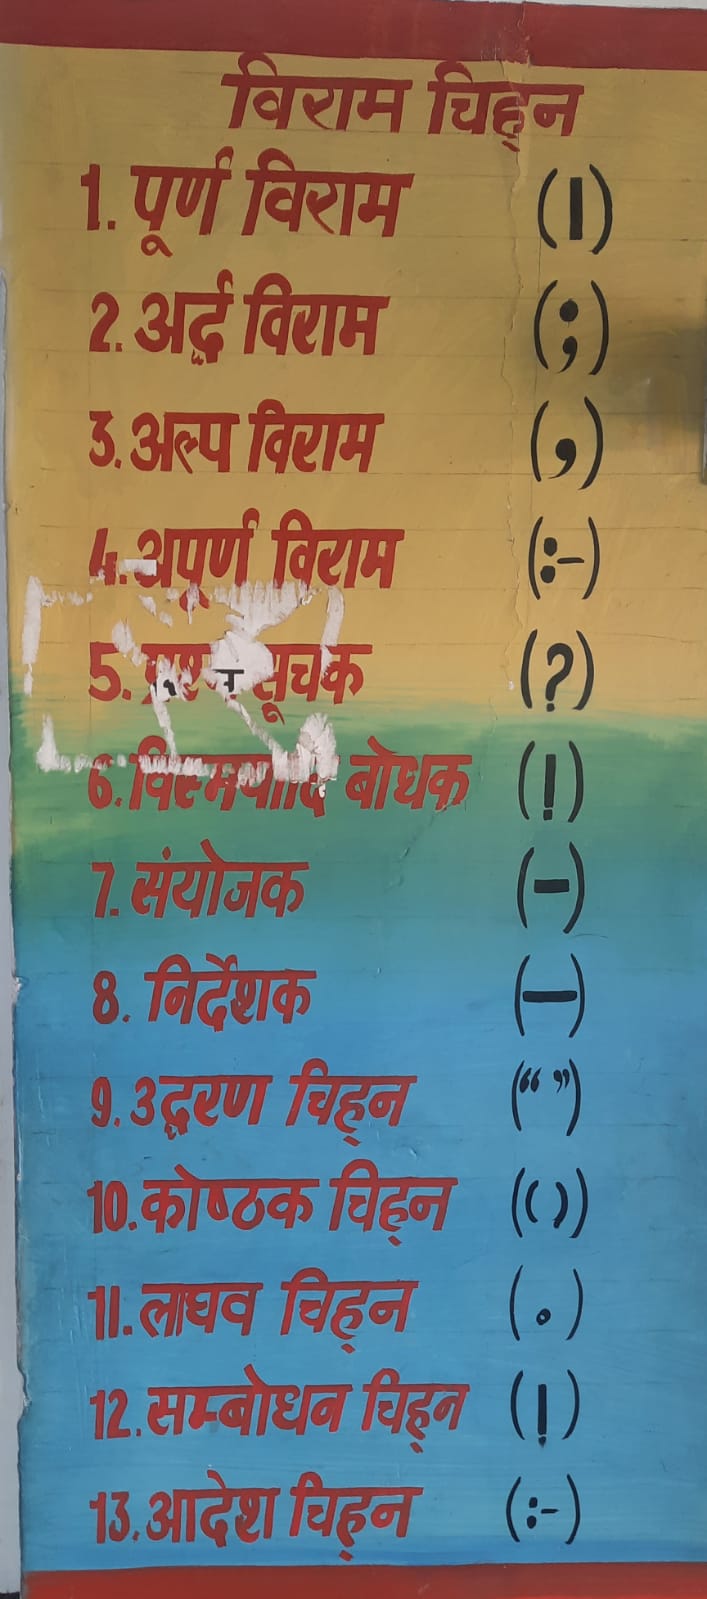 विराम चिह्न
1. पूर्ण विराम (।)
2. अर्द्ध विराम (;)
3. अल्प विराम (,)
4. अपूर्ण विराम (:-)
5. प्रश्न सूचक (?)
6. विस्मयादि बोधक (!)
7. संयोजक (-)
8. निर्देशक (—)
9. उद्धरण चिह्न (“ ”)
10. कोष्ठक चिह्न (( ))
11. लाघव चिह्न (॰)
12. सम्बोधन चिह्न (!)
13. आदेश चिह्न (:-)